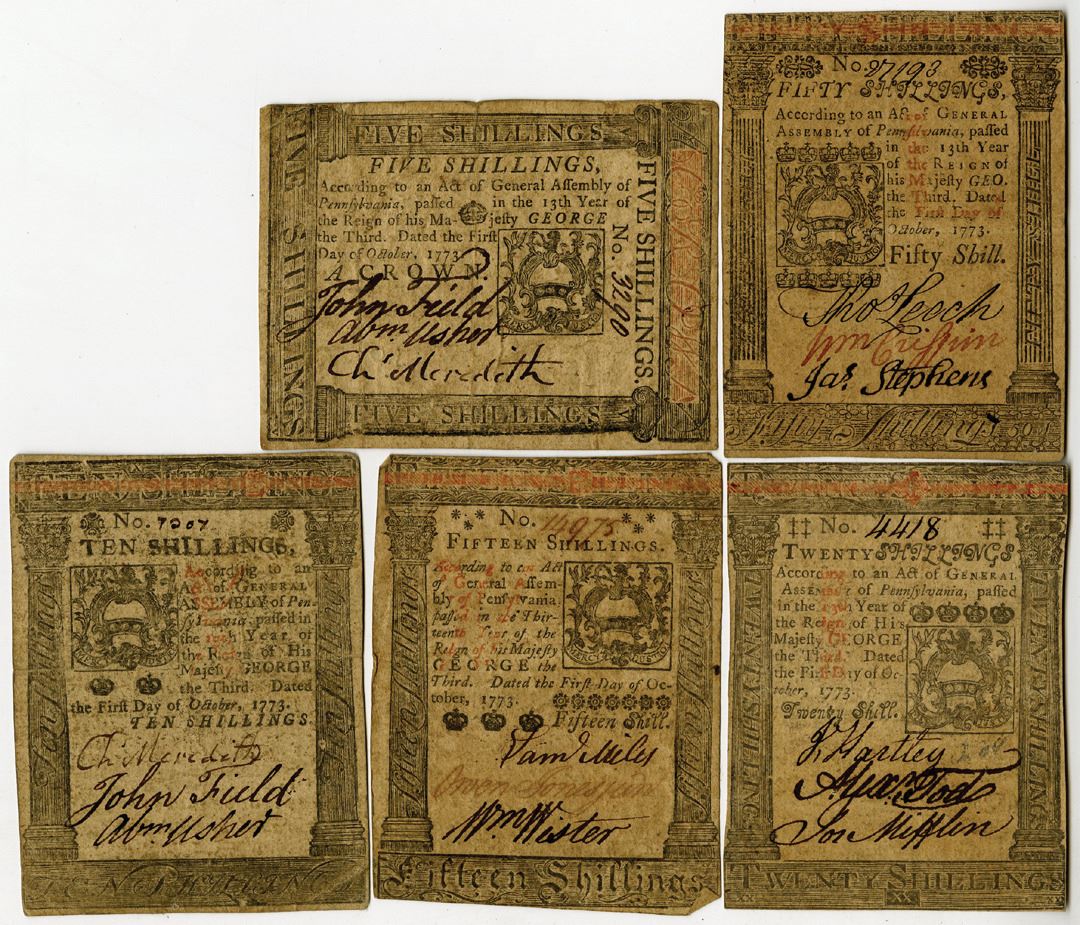 FIVE SHILLINGS
FIVE SHILLINGS,
According to an Act of General Aſſembly of
Pennſylvania, paſſed in the 13th Year of
the Reign of his Majeſty GEORGE
the Third. Dated the Firſt
Day of October, 1773.
A CROWN.
No. 3290
John Field
Abm Usher
Ch Meredith
FIVE SHILLINGS
FIVE SHILLINGS
FIVE SHILLINGS.
No. 27193
FIFTY SHILLINGS,
According to an Act of GENERAL
ASSEMBLY of Pennſylvania, paſſed
in the 13th Year
of the REIGN of
his Majeſty GEO.
the Third. Dated
the Firſt Day of
October, 1773.
Fifty Shill.
Tho Leech
Wm Crispin
Jas. Stephens
Fifty Shillings
TEN SHILLINGS
No. 7207
TEN SHILLINGS,
According to an
Act of GENERAL
ASSEMBLY of Pen-
ſylvania, paſſed in
the 13th Year of
the Reign of His
Majeſty GEORGE
the Third. Dated
the Firſt Day of October, 1773.
TEN SHILLINGS.
Ch Meredith
John Field
Abm Usher
Ten Shillings
TEN SHILLING
No. 14975
FIFTEEN SHILLINGS.
According to an Act
of General Aſſem-
bly of Penſylvania
paſſed in the Thir-
teenth Year of the
Reign of his Majeſty
GEORGE the
Third. Dated the Firſt Day of Oc-
tober, 1773.
Fifteen Shill.
Saml Miles
Owen Jones junr
Wm Wister
Fifteen Shillings
No. 4418
TWENTY SHILLINGS
According to an Act of GENERAL
ASSEMBLY of Pennſylvania, paſſed
in the 13th Year of
the Reign of His
Majeſty GEORGE
the Third. Dated
the Firſt Day of Oc-
tober, 1773.
Twenty Shill.
J Hartley
Alexr Tod
Jos Mifflin
TWENTY SHILLINGS
TWENTY SHILLINGS
TWENTY SHILLINGS
XX XX